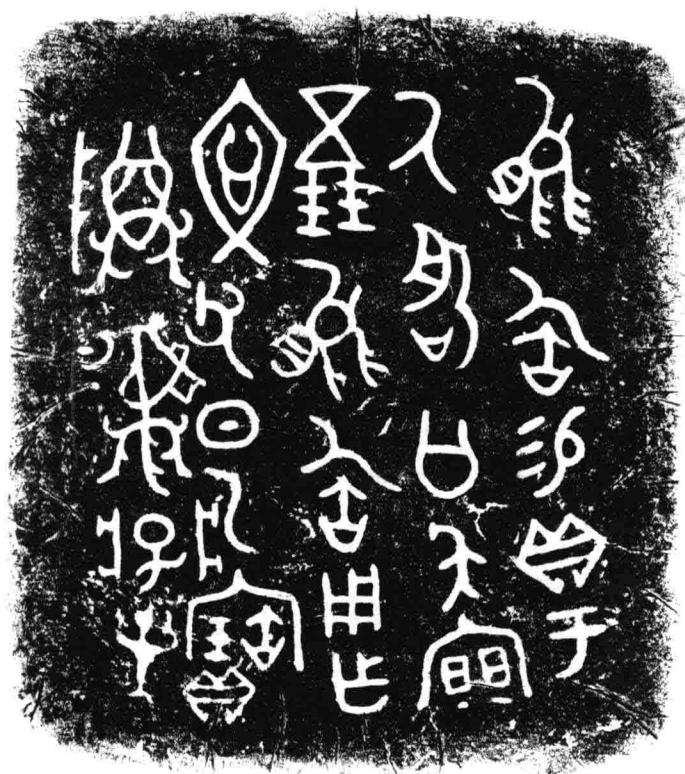 能匋易貝于
厥公夨
五朋能匋用乍
文父日乙寶
尊彝